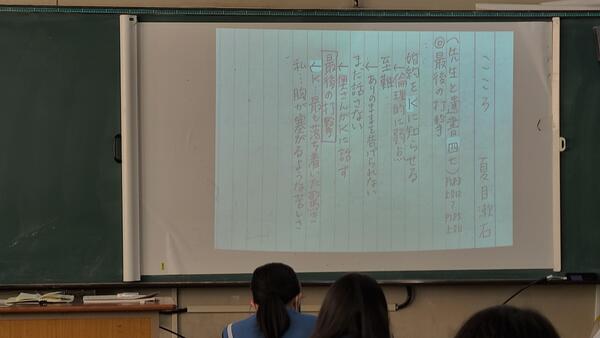 こころ 夏目漱石
(先生と遺書 四七)
◎最後の打撃
婚約をKに知らせる
↑倫理的に弱点
至難
↑ありのままを告げられない
まだ話さない
↑奥さんがKに話す
最後の打撃
↑K…最も落ち着いた驚き
私…胸が塞がるような苦しさ